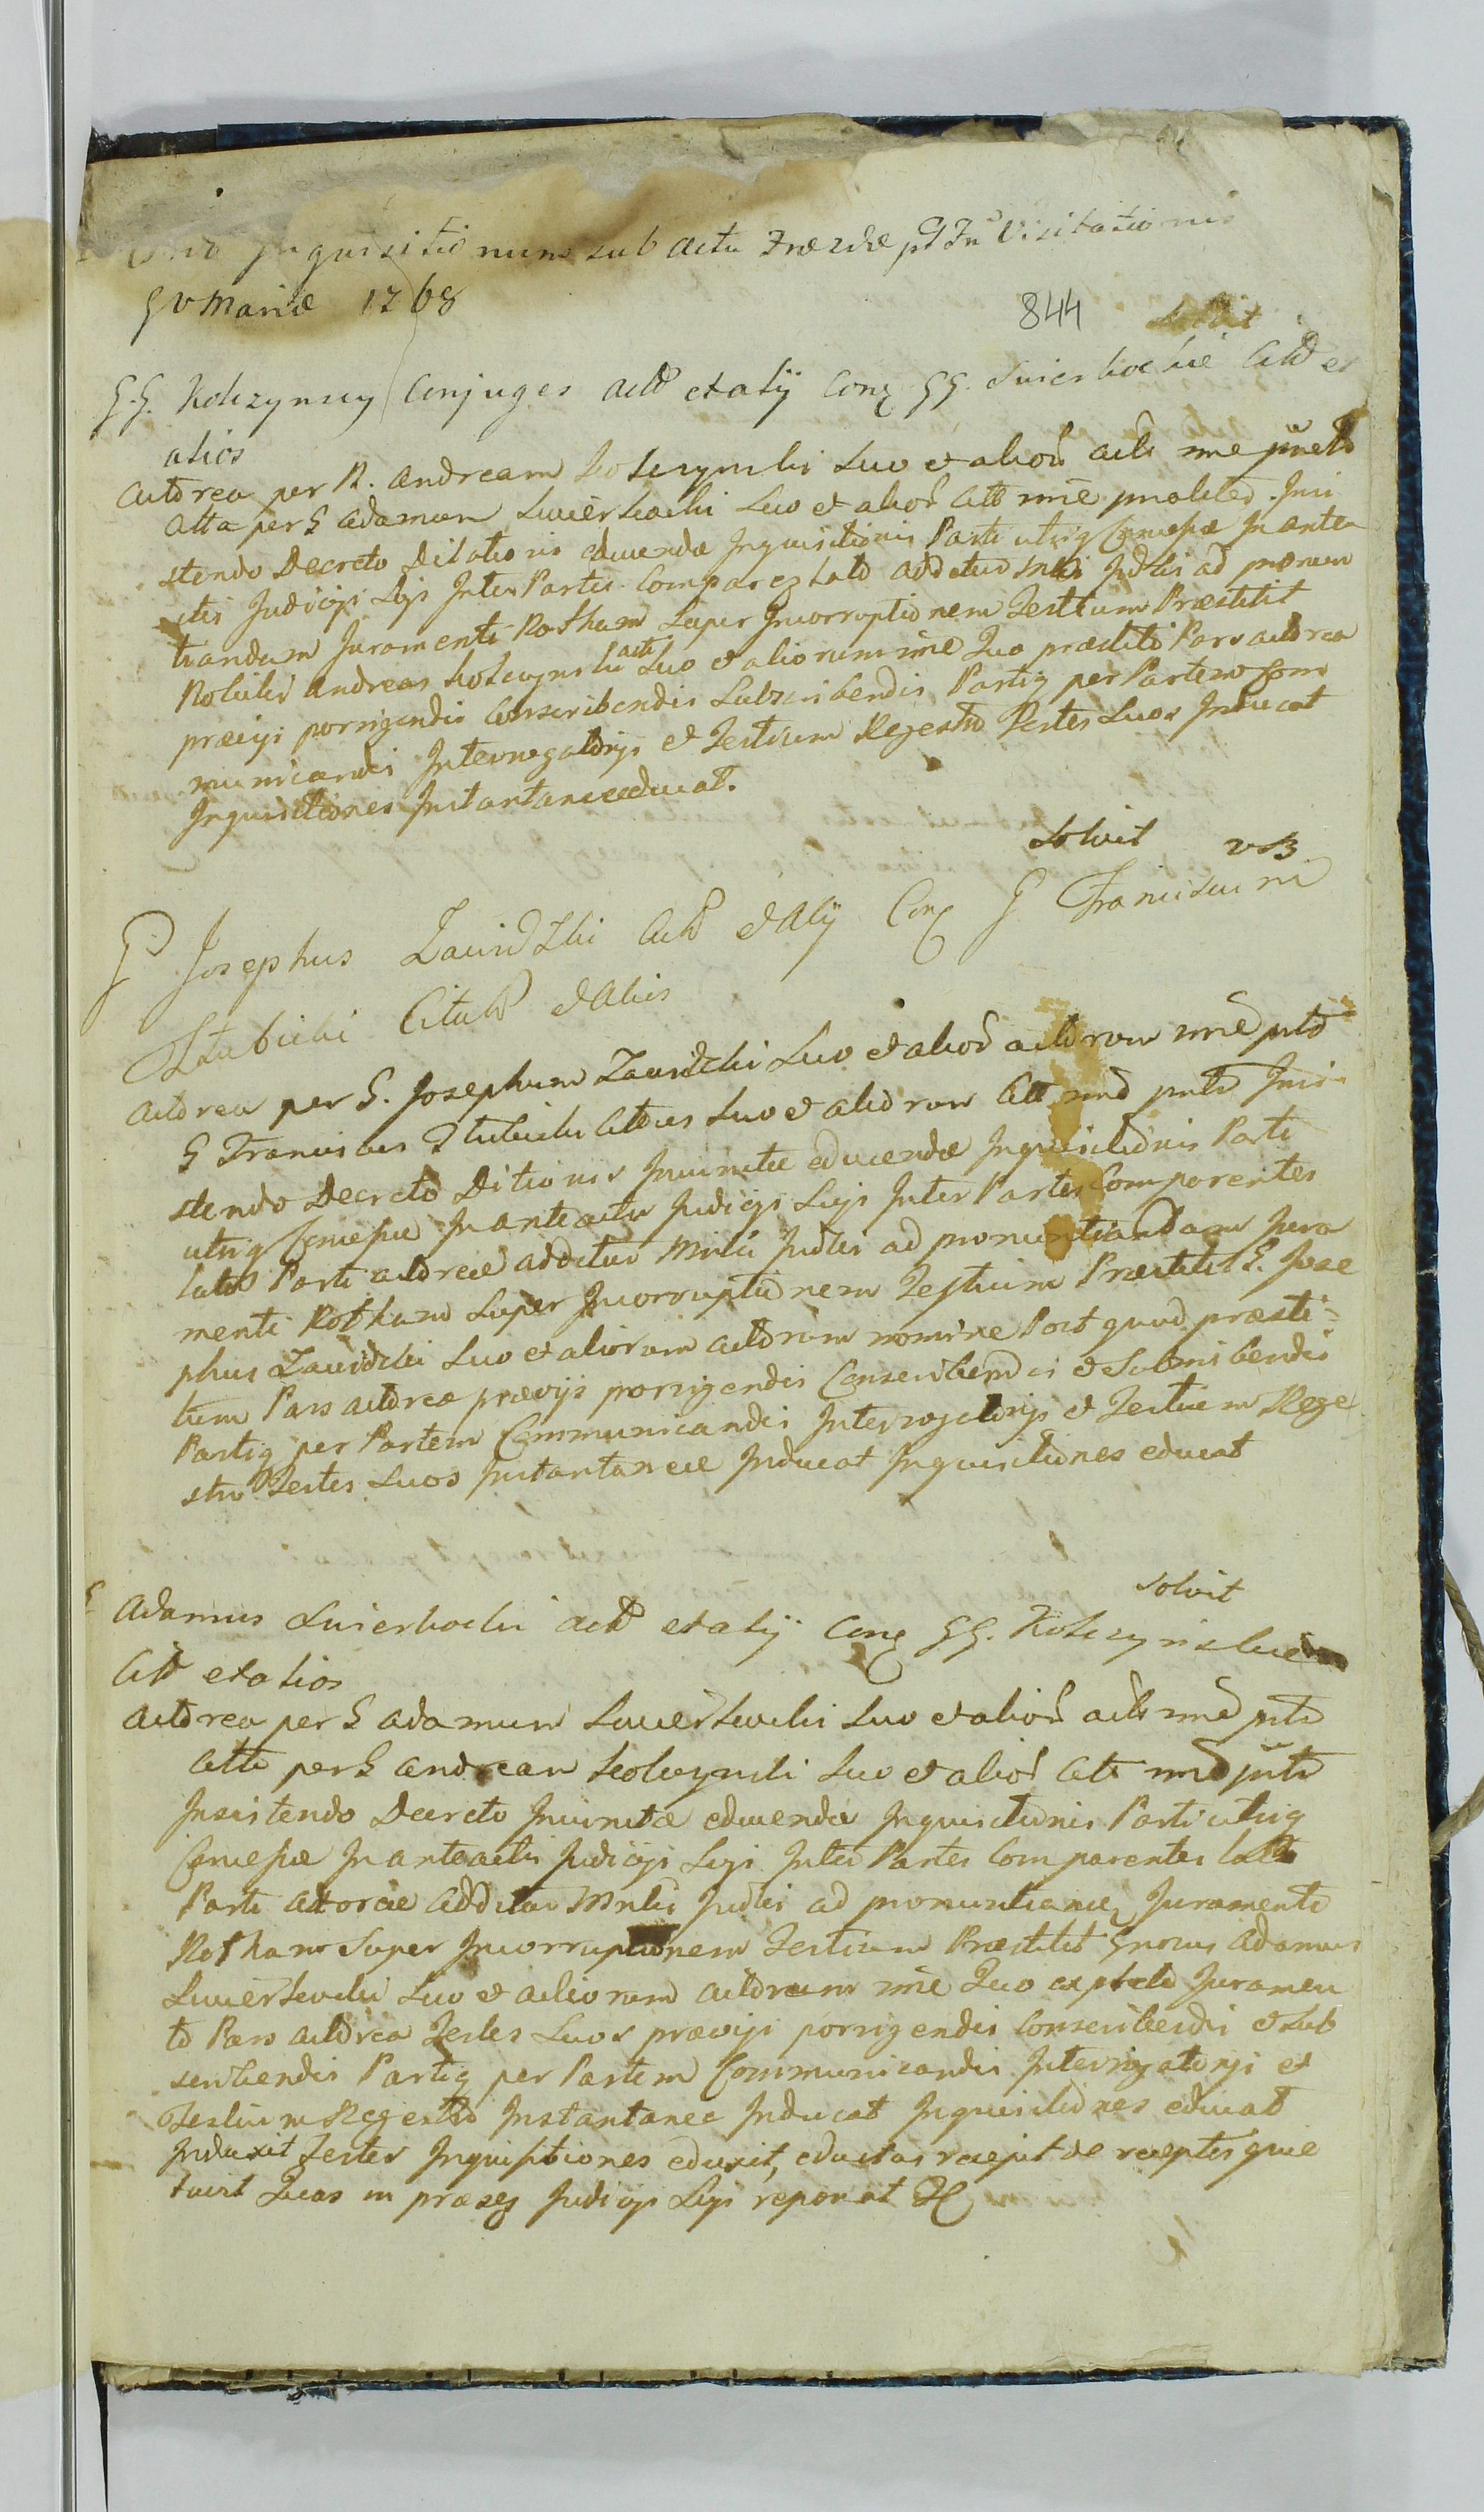 Inquisitionum sub actu Fræ 2dæ pt Fu Visitationis
B V Mariæ 1768
844 solvit
G.G. Kolczynscy Conjuges act et alij Conq GG. Swierkockie Citd et
alios
Actorea per N. Andream Kolczynski suo et alior act nne
Citta per G Adamum Swierkocki suo et alior Citt nne Insi
stendo Decreto Dilationis educendæ Inquisitionis Parti utriq Concessæ In antea
ctis Judicijs Sljs Inter Partes Comparen lato additur Mnlis Judlis ad pronun
tiandam Juramenti Rotham super Incorruptionem Testium Præstitit
Nobilis Andreas Kolczynski act suo et aliorum nne Quo præstito Pars actorea
prævijs porrigendis Conscribendis Subscribendis Partiq per Partem Com
municandis Interrogatorijs et Testium Regestro Testes suos Inducat
Inquisitiones Instantanee educat.
solvit
G Josephus Zawidzki Act et Alij Conq G Franciscum
Stubicki Citatd et Alios
Actorea per G. Josephum Zawidzki suo et alior actorum nne
G Franciscus Stubicki Cittus suo et aliorum Citt Insi
stendo Decreto Ditionis Juvinctæ educendæ Inquisitionis Parti
utriq Concessæ In anteactis Judicijs Sljs Inter Partes Comparentes
lato Parti actoreæ additur Mnlis Judlis ad pronuntiandam Jura
menti Rotham super Incorruptionem Testium Præstitit G. Jose
phus Zawidzki suo et aliorum actorum nomine Post quod præsti-
tum Pars actorea prævijs porrigendis Conscribendis et Subscribendis
Partiq per Partem Communicandis Interrogatorijs et Testium Rege
stro Testes suos Instantanee Inducat Inquisitiones educat
solvit
G Adamus Swierkocki act et alij Conq GG. Kolczynskie
Citt et alios
Actorea per G Adamum Swierkocki suo et alior act nne
Citta per G Andream Kolczynski suo et alior Citt nne
Insistendo Decreto Juvinctæ educendæ Inquisitionis Parti utriq
Concessæ In anteactis Judicijs Sljs Inter Partes Comparentes lato
Parti actoreæ additur Mnlis Judlis ad pronuntian Juramenti
Rotham Super Incorruptionem Testium Præstitit Gnosus Adamus
Swierkocki suo et aliorum actorum nne Quo expleto Juramen
to Pars actorea Testes suos prævijs porrigendis Conscribendis et sub
scribendis Partiq per Partem Communicandis Interrogatorijs et
Testium Regestro Instantanee Inducat Inquisitiones educat
Induxit Testes Inquisitiones eduxit, eductas recepit de receptis quie
tavit Quas in præseq Judicijs Sljs reponat